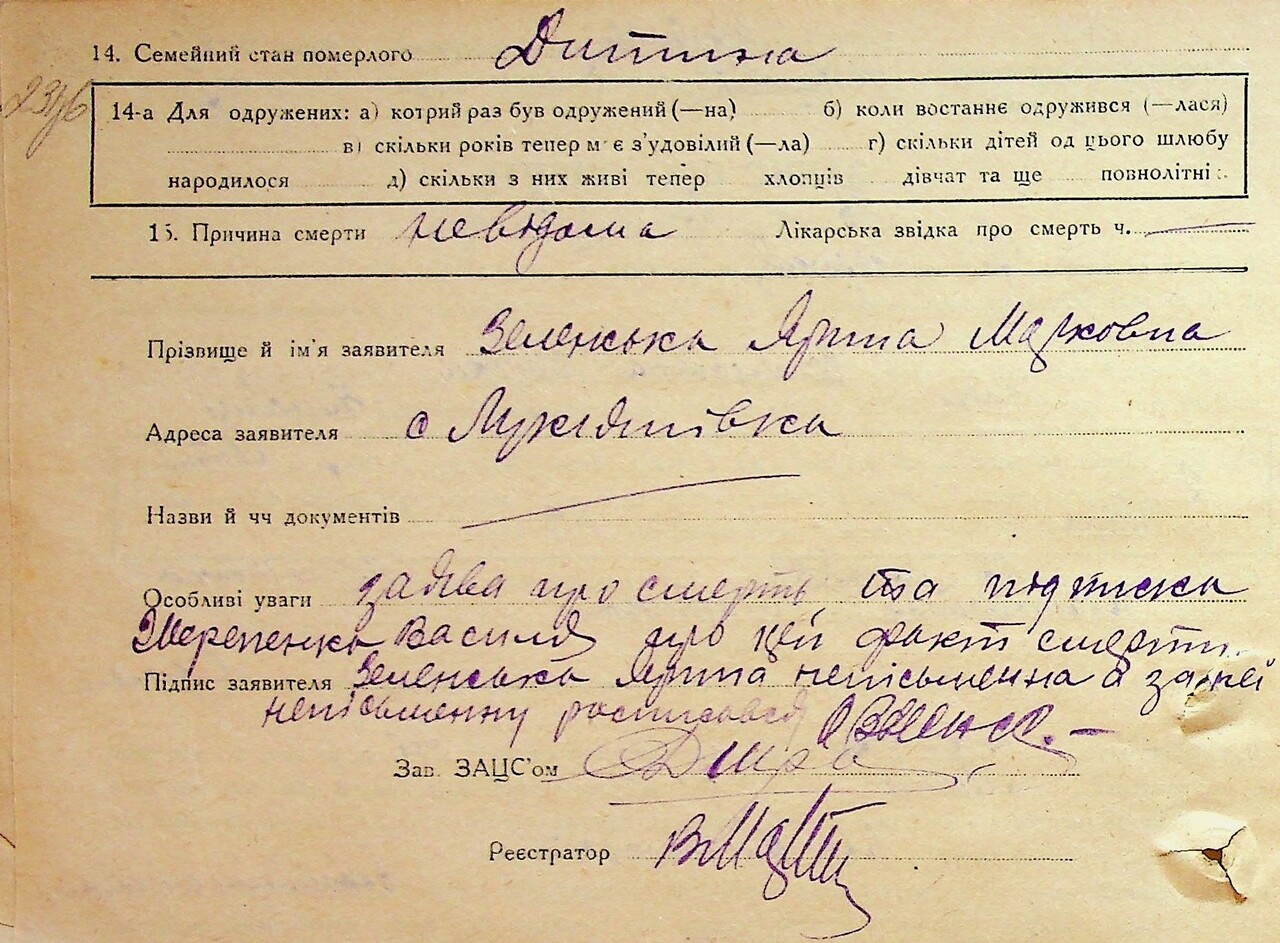 14. Семейний стан померлого Дитина
14-а Для одружених: а) котрий раз був одружений (—на) б) коли востаннє одружився (—лася)
в) скільки років тепер має з'удовілий (—ла) г) скільки дітей од цього шлюбу
народилося д) скільки з них живі тепер хлопців дівчат та ще повнолітні
15. Причина смерти невідома Лікарська звідка про смерть ч. —
Прізвище й ім'я заявителя Зеленська Ярина Марковна
Адреса заявителя с Лукашівка
Назви й чч документів —
Особливі уваги заява про смерть та підписка
Василя про цей факт смерти.
Підпис заявителя Зеленська Ярина неписьменна а за неї
неписьменну росписався
Зав. ЗАЦС'ом
Реєстратор